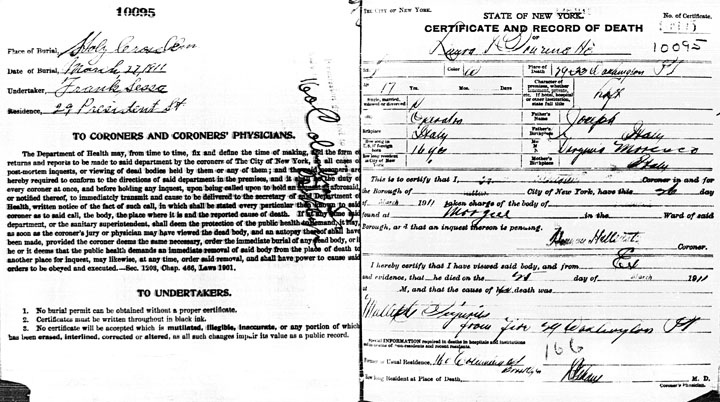 10095
Place of Burial, Holy Cross Cem
Date of Burial, March 27, 1911
Undertaker, Frank Sessa
Residence, 29 President St
TO CORONERS AND CORONERS' PHYSICIANS.
The Department of Health may, from time to time, fix and define the time of making, and the form of
returns and reports to be made to said department by the coroners of The City of New York, in all cases of
post-mortem inquests, or viewing of dead bodies held by them or any of them; and the coroners are
hereby required to conform to the directions of said department in the premises, and it is the duty of
every coroner at once, and before holding any inquest, upon being called upon to hold an inquest aforesaid,
or notified thereof, to immediately transmit and cause to be delivered to the secretary of said Department of
Health, written notice of the fact of such call, in which shall be stated every particular then known to said
coroner as to said call, the body, the place where it is and the reported cause of death. If the
department, or the sanitary superintendent, shall deem the protection of the public health demands it, may,
as soon as the coroner's jury or physician may have viewed the dead body, and an autopsy thereof shall have
been made, provided the coroner deems the same necessary, order the immediate burial of any dead body, or if
he or it deems that the public health demands an immediate removal of said body from the place of death to
another place for inquest, may likewise, at any time, order said removal, and shall have power to cause said
orders to be obeyed and executed.—Sec. 1203, Chap. 466, Laws 1901.
TO UNDERTAKERS.
1. No burial permit can be obtained without a proper certificate.
2. Certificates must be written throughout in black ink.
3. No certificate will be accepted which is mutilated, illegible, inaccurate, or any portion of which
has been erased, interlined, corrected or altered, as all such changes impair its value as a public record.
THE CITY OF NEW YORK.
STATE OF NEW YORK.
No. of Certificate.
CERTIFICATE AND RECORD OF DEATH
OF
10095
Color W
Place of Death
17 Yrs. Mos. Days
Character of premises, whether tenement, private, etc. If hotel, hospital or other institution, state full title
S
Operator
Father's Name Joseph
Birthplace Italy
Father's Birthplace Italy
16 yrs
Mother's Name
Mother's Birthplace Italy
This is to certify that I, Coroner in and for
the Borough of City of New York, have this
day of March 1911 taken charge of the body of
found at Morgue in the Ward of said
Borough, and that an inquest thereon is pending.
Coroner.
I hereby certify that I have viewed said body, and from
and evidence, that he died on the day of March 1911
at M, and that the cause of death was
Multiple Injuries
from fire
166
Special INFORMATION required in deaths in hospitals and institutions
and in deaths of non-residents and recent residents.
Former or Usual Residence,
How long Resident at Place of Death, M. D.
Coroner's Physician.